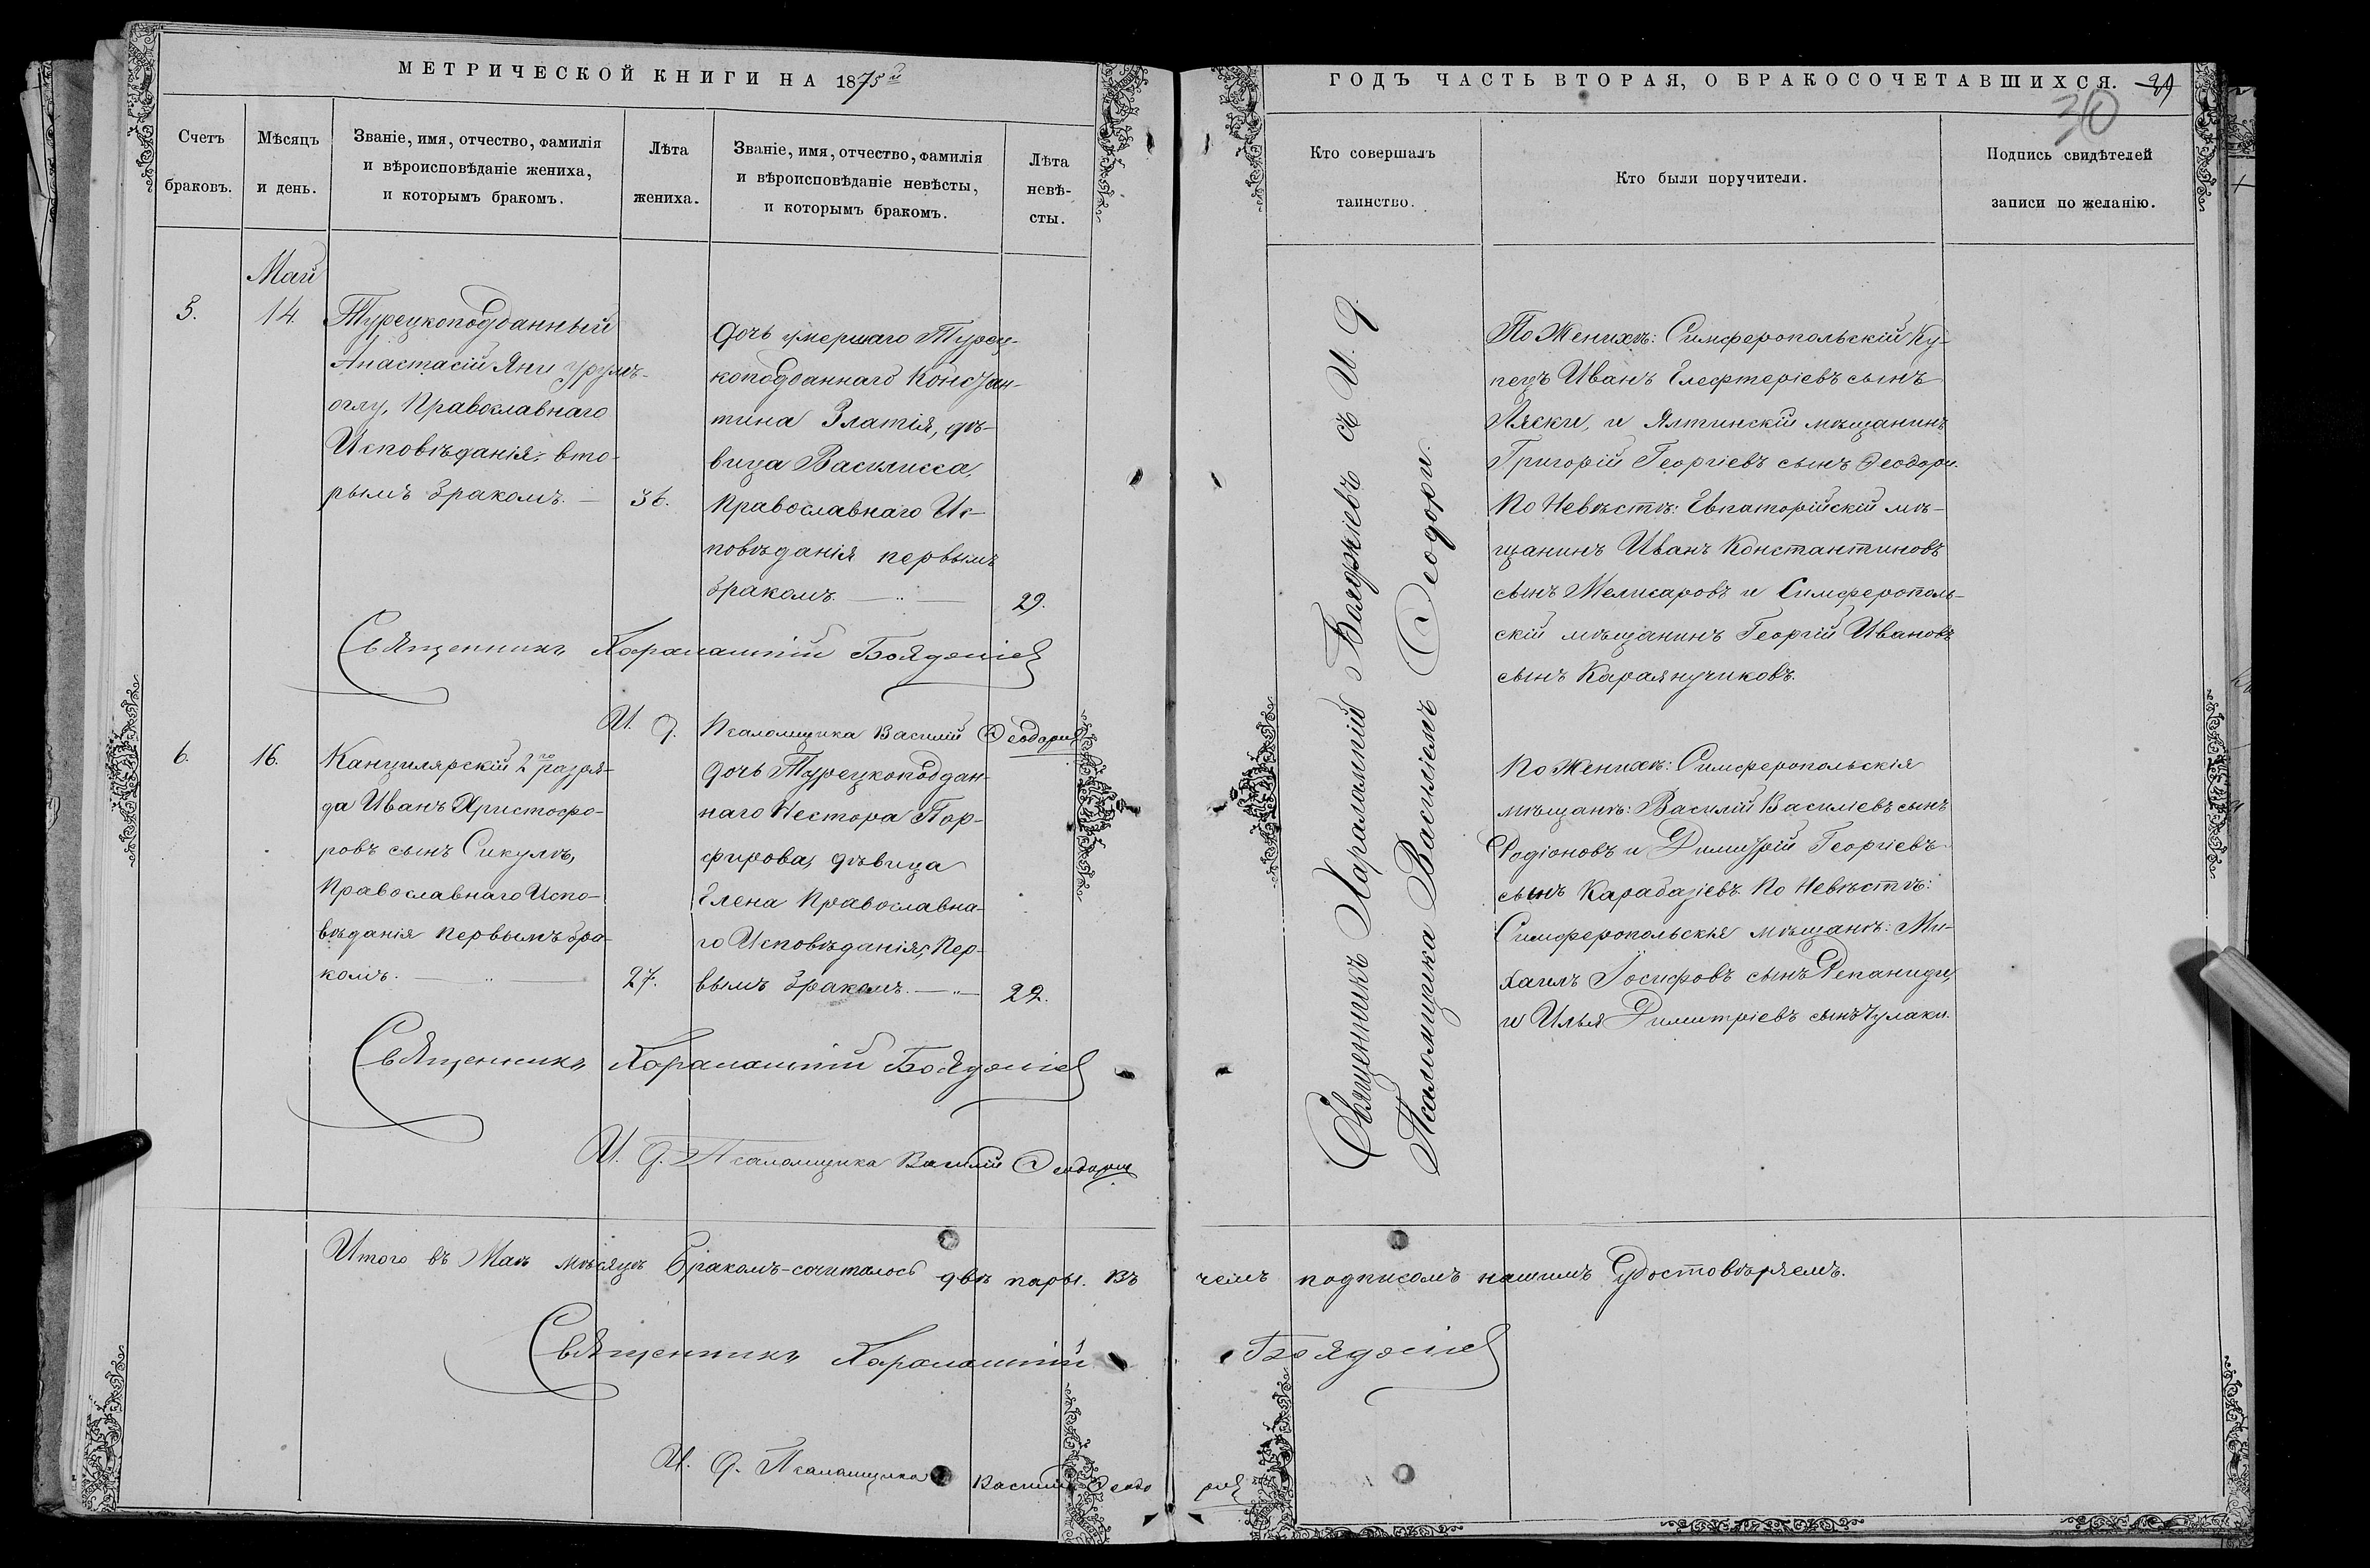 МЕТРИЧЕСКОЙ КНИГИ НА 1875й
Счетъ браковъ.
Мѣсяцъ и день.
Званіе, имя, отчество, фамилія
и вѣроисповѣданіе жениха,
и которымъ бракомъ.
Лѣта
жениха.
Званіе, имя, отчество, фамилія
и вѣроисповѣданіе невѣсты,
и которымъ бракомъ.
Лѣта
невѣ-
сты.
Май
14.
Турецкоподданный
Анастасій Яни Урумъ-
оглу, Православнаго
Исповѣданія, вто-
рымъ бракомъ. —
36.
Дочь умершаго Турец-
коподданнаго Констан-
тина Златія, дѣ-
вица Василисса,
Православнаго Ис-
повѣданія первымъ
бракомъ.
29.
Священникъ Харалампій Бояджіев
И. д. Псаломщика Василій Феодори
6.
16.
Канцилярскій 2го разря-
да Иванъ Христофо-
ровъ сынъ Сикулъ,
Православнаго Испо-
вѣданія первымъ бра-
комъ.
27.
Дочь Турецкоподдан-
наго Нестора Пор-
фирова, дѣвица
Елена Православна-
го Исповѣданія, Пер-
вымъ бракомъ.
22.
Священникъ Харалампій Бояджіев
И. д. Псаломщика Василій Феодори
Итого въ Маѣ мѣсяцѣ Бракомъ-сочиталось двѣ пары. Въ
Священникъ Харалампій
И. д. Псаломщика Василій Феодо
ГОДЪ ЧАСТЬ ВТОРАЯ, О БРАКОСОЧЕТАВШИХСЯ.
30
Кто совершалъ
таинство.
Кто были поручители.
Подпись свидѣтелей
записи по желанію.
Священникъ Харалампій Бояджіевъ съ И. д.
Псаломщика Василіемъ Феодори.
По Женихѣ: Симферопольскій Ку-
пецъ Иванъ Елефтеріевъ сынъ
Ляски, и Ялтинскій мѣщанинъ
Григорій Георгіевъ сынъ Феодори.
По Невѣстѣ: Евпаторійскій мѣ-
щанинъ Иванъ Константиновъ
сынъ Мелисаровъ и Симферополь-
скій мѣщанинъ Георгій Ивановъ
сынъ Караянучиковъ.
По Женихѣ: Симферопольскія
мѣщанѣ: Василій Василіевъ сынъ
Родіоновъ и Димитрій Георгіевъ
сынъ Карабазіевъ. По Невѣстѣ:
Симферопольскія мѣщанѣ: Ми-
хаилъ Іосифовъ сынъ Репаниди,
и Илья Димитріевъ сынъ Чулаки.
чемъ подписомъ нашимъ Удостовѣряемъ.
Бояджіев
ри